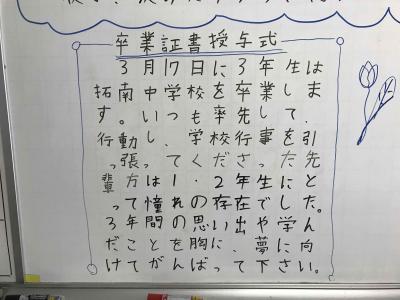 卒業証書授与式
3月17日に3年生は
拓南中学校を卒業しま
す。いつも率先して、
行動し、学校行事を引
っ張ってくださった先
輩方は1・2年生にと
って憧れの存在でした。
3年間の思い出や学ん
だことを胸に、夢に向
けてがんばって下さい。